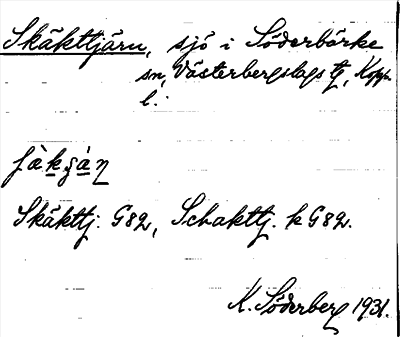 Skäkttjärn, sjö i Söderbärke
sn, Västerbergslags tg, Kopp.
l.
Skäkttj. G82, Schakttj. k G82.
K. Söderberg 1931.